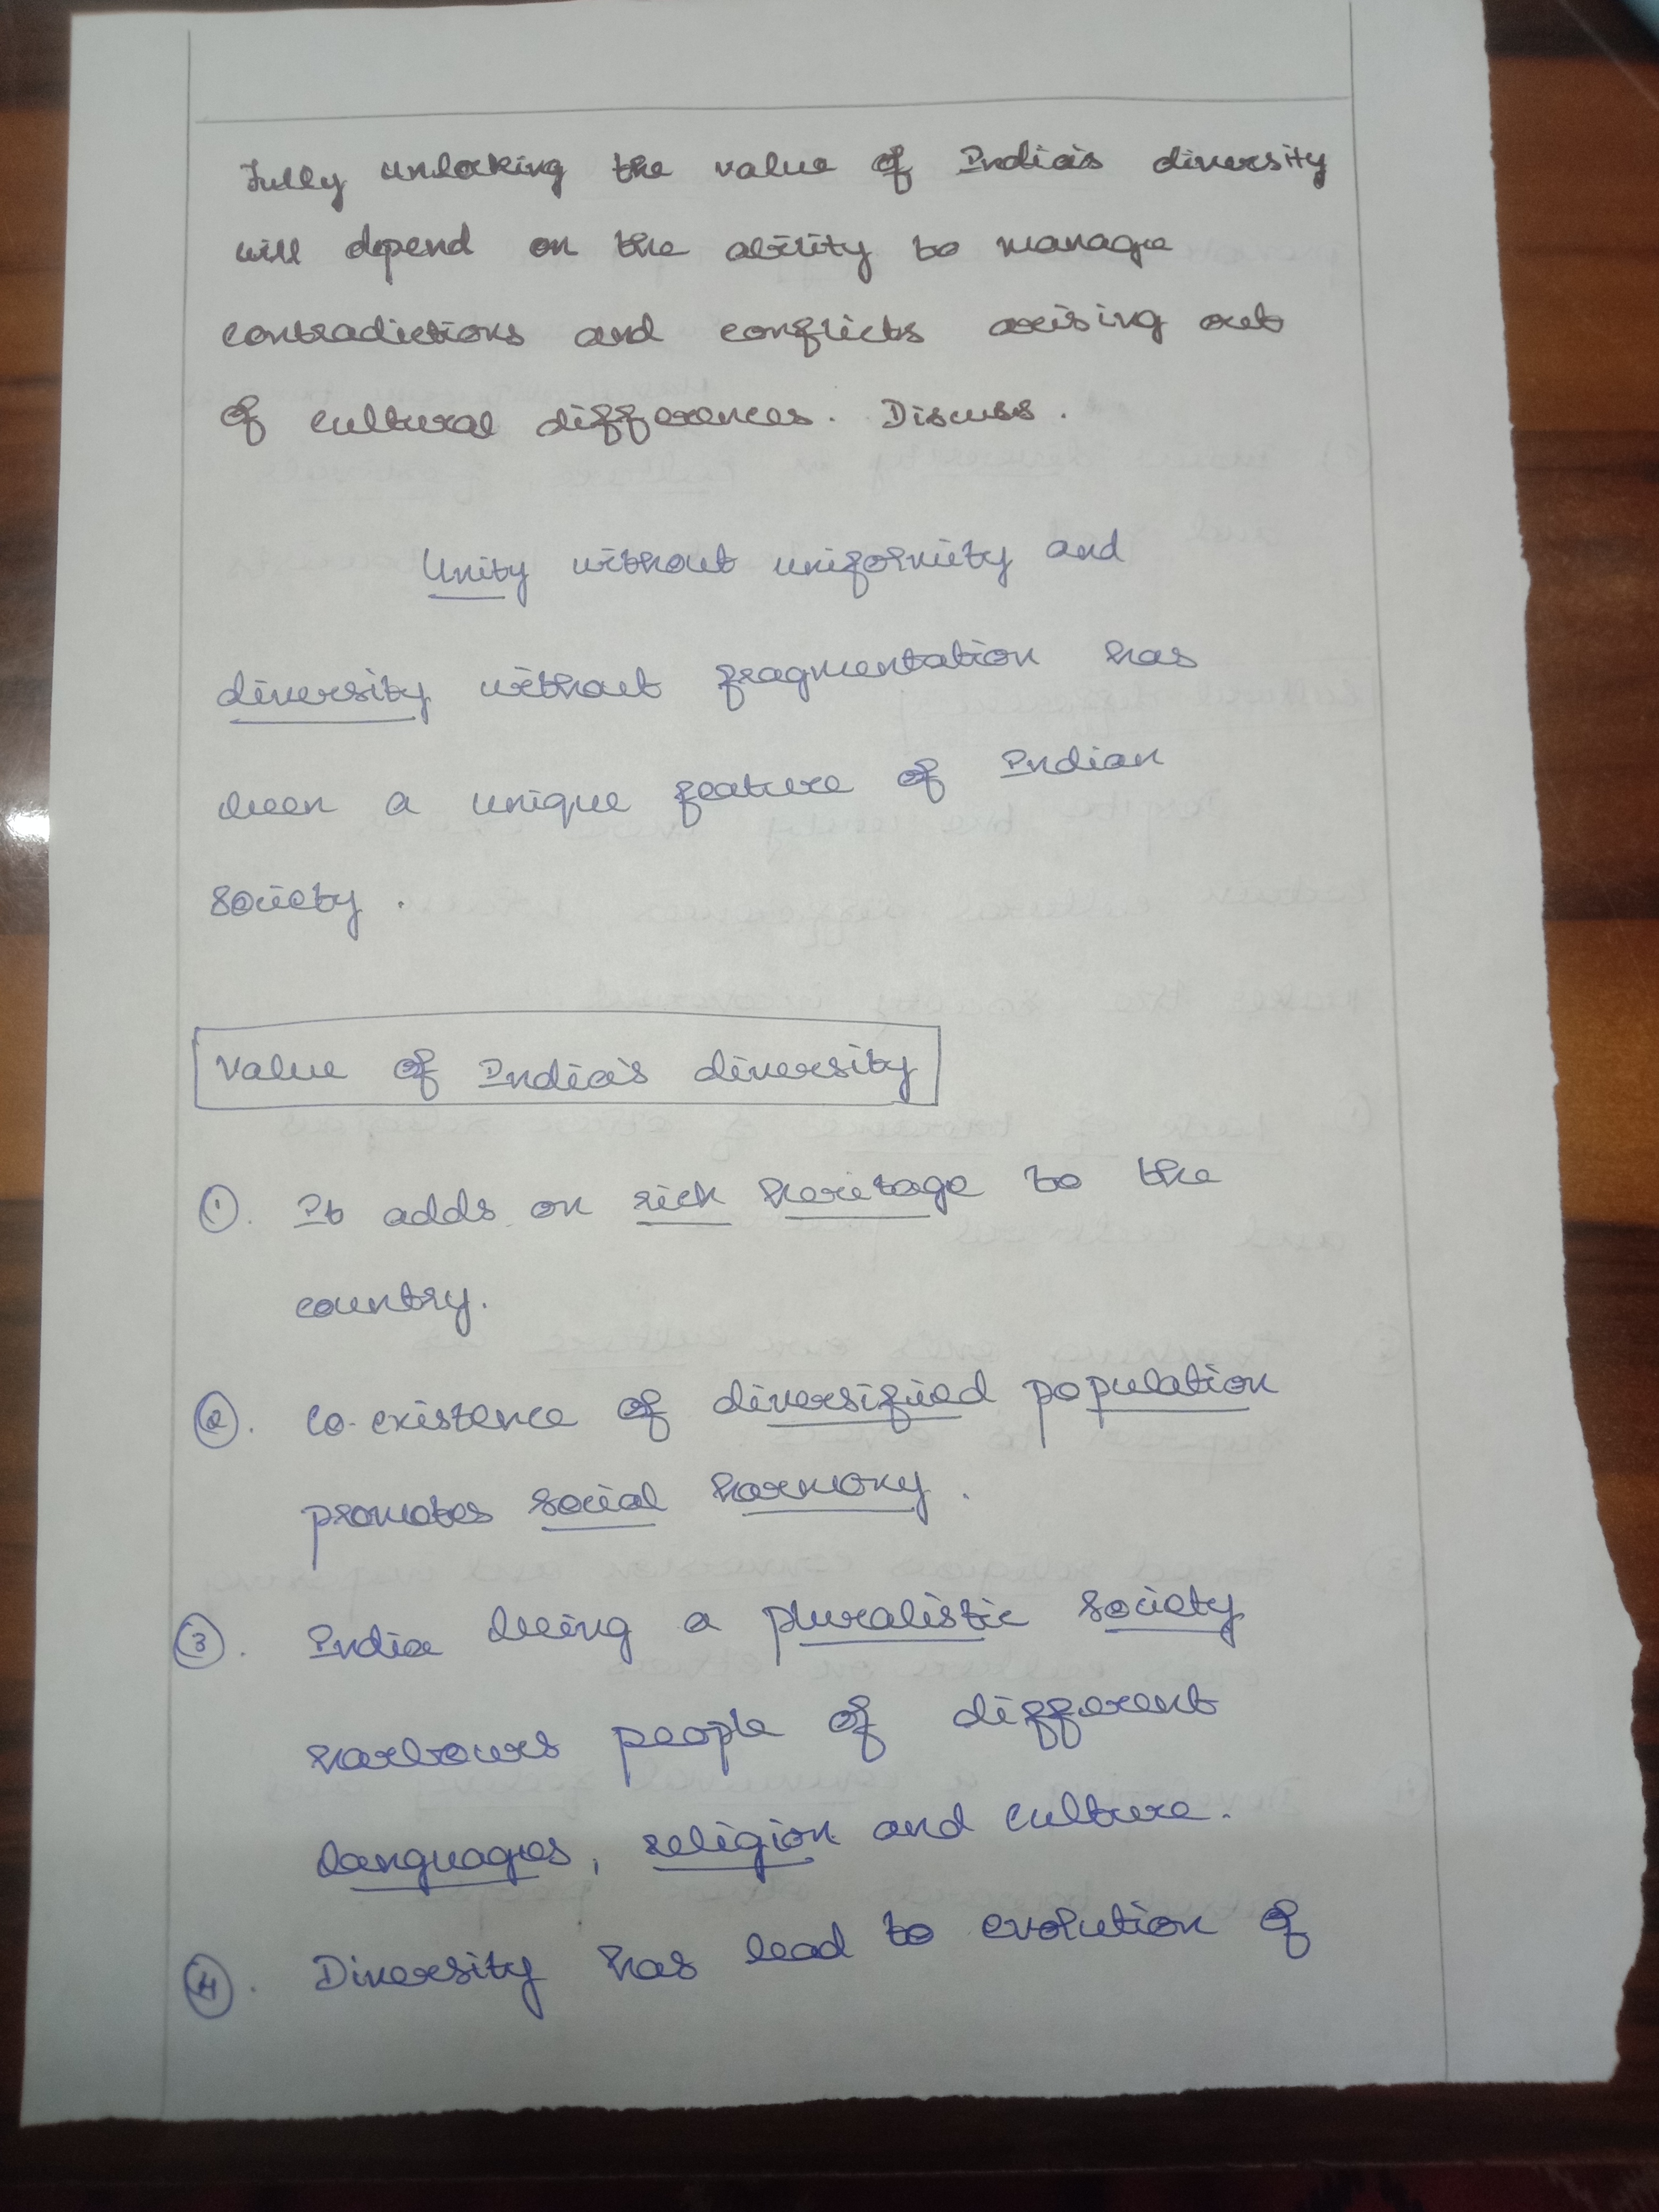 Fully unlocking the value of India's diversity
will depend on the ability to manage
contradictions and conflicts arising out
of cultural differences. Discuss.
Unity without uniformity and
diversity without fragmentation has
been a unique feature of Indian
society.
Value of India's diversity
①. It adds on rich heritage to the
country.
②. Co-existence of diversified population
promotes social harmony.
③. India being a pluralistic society
harbours people of different
languages, religion and culture.
④. Diversity has lead to evolution of